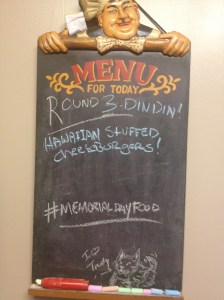 MENU
FOR TODAY
ROUND 3-DINDIN!
HAWAIIAN STUFFED
CHEESBURGERS!
#MEMORIALDAYFOOD
I ♡
Trudy